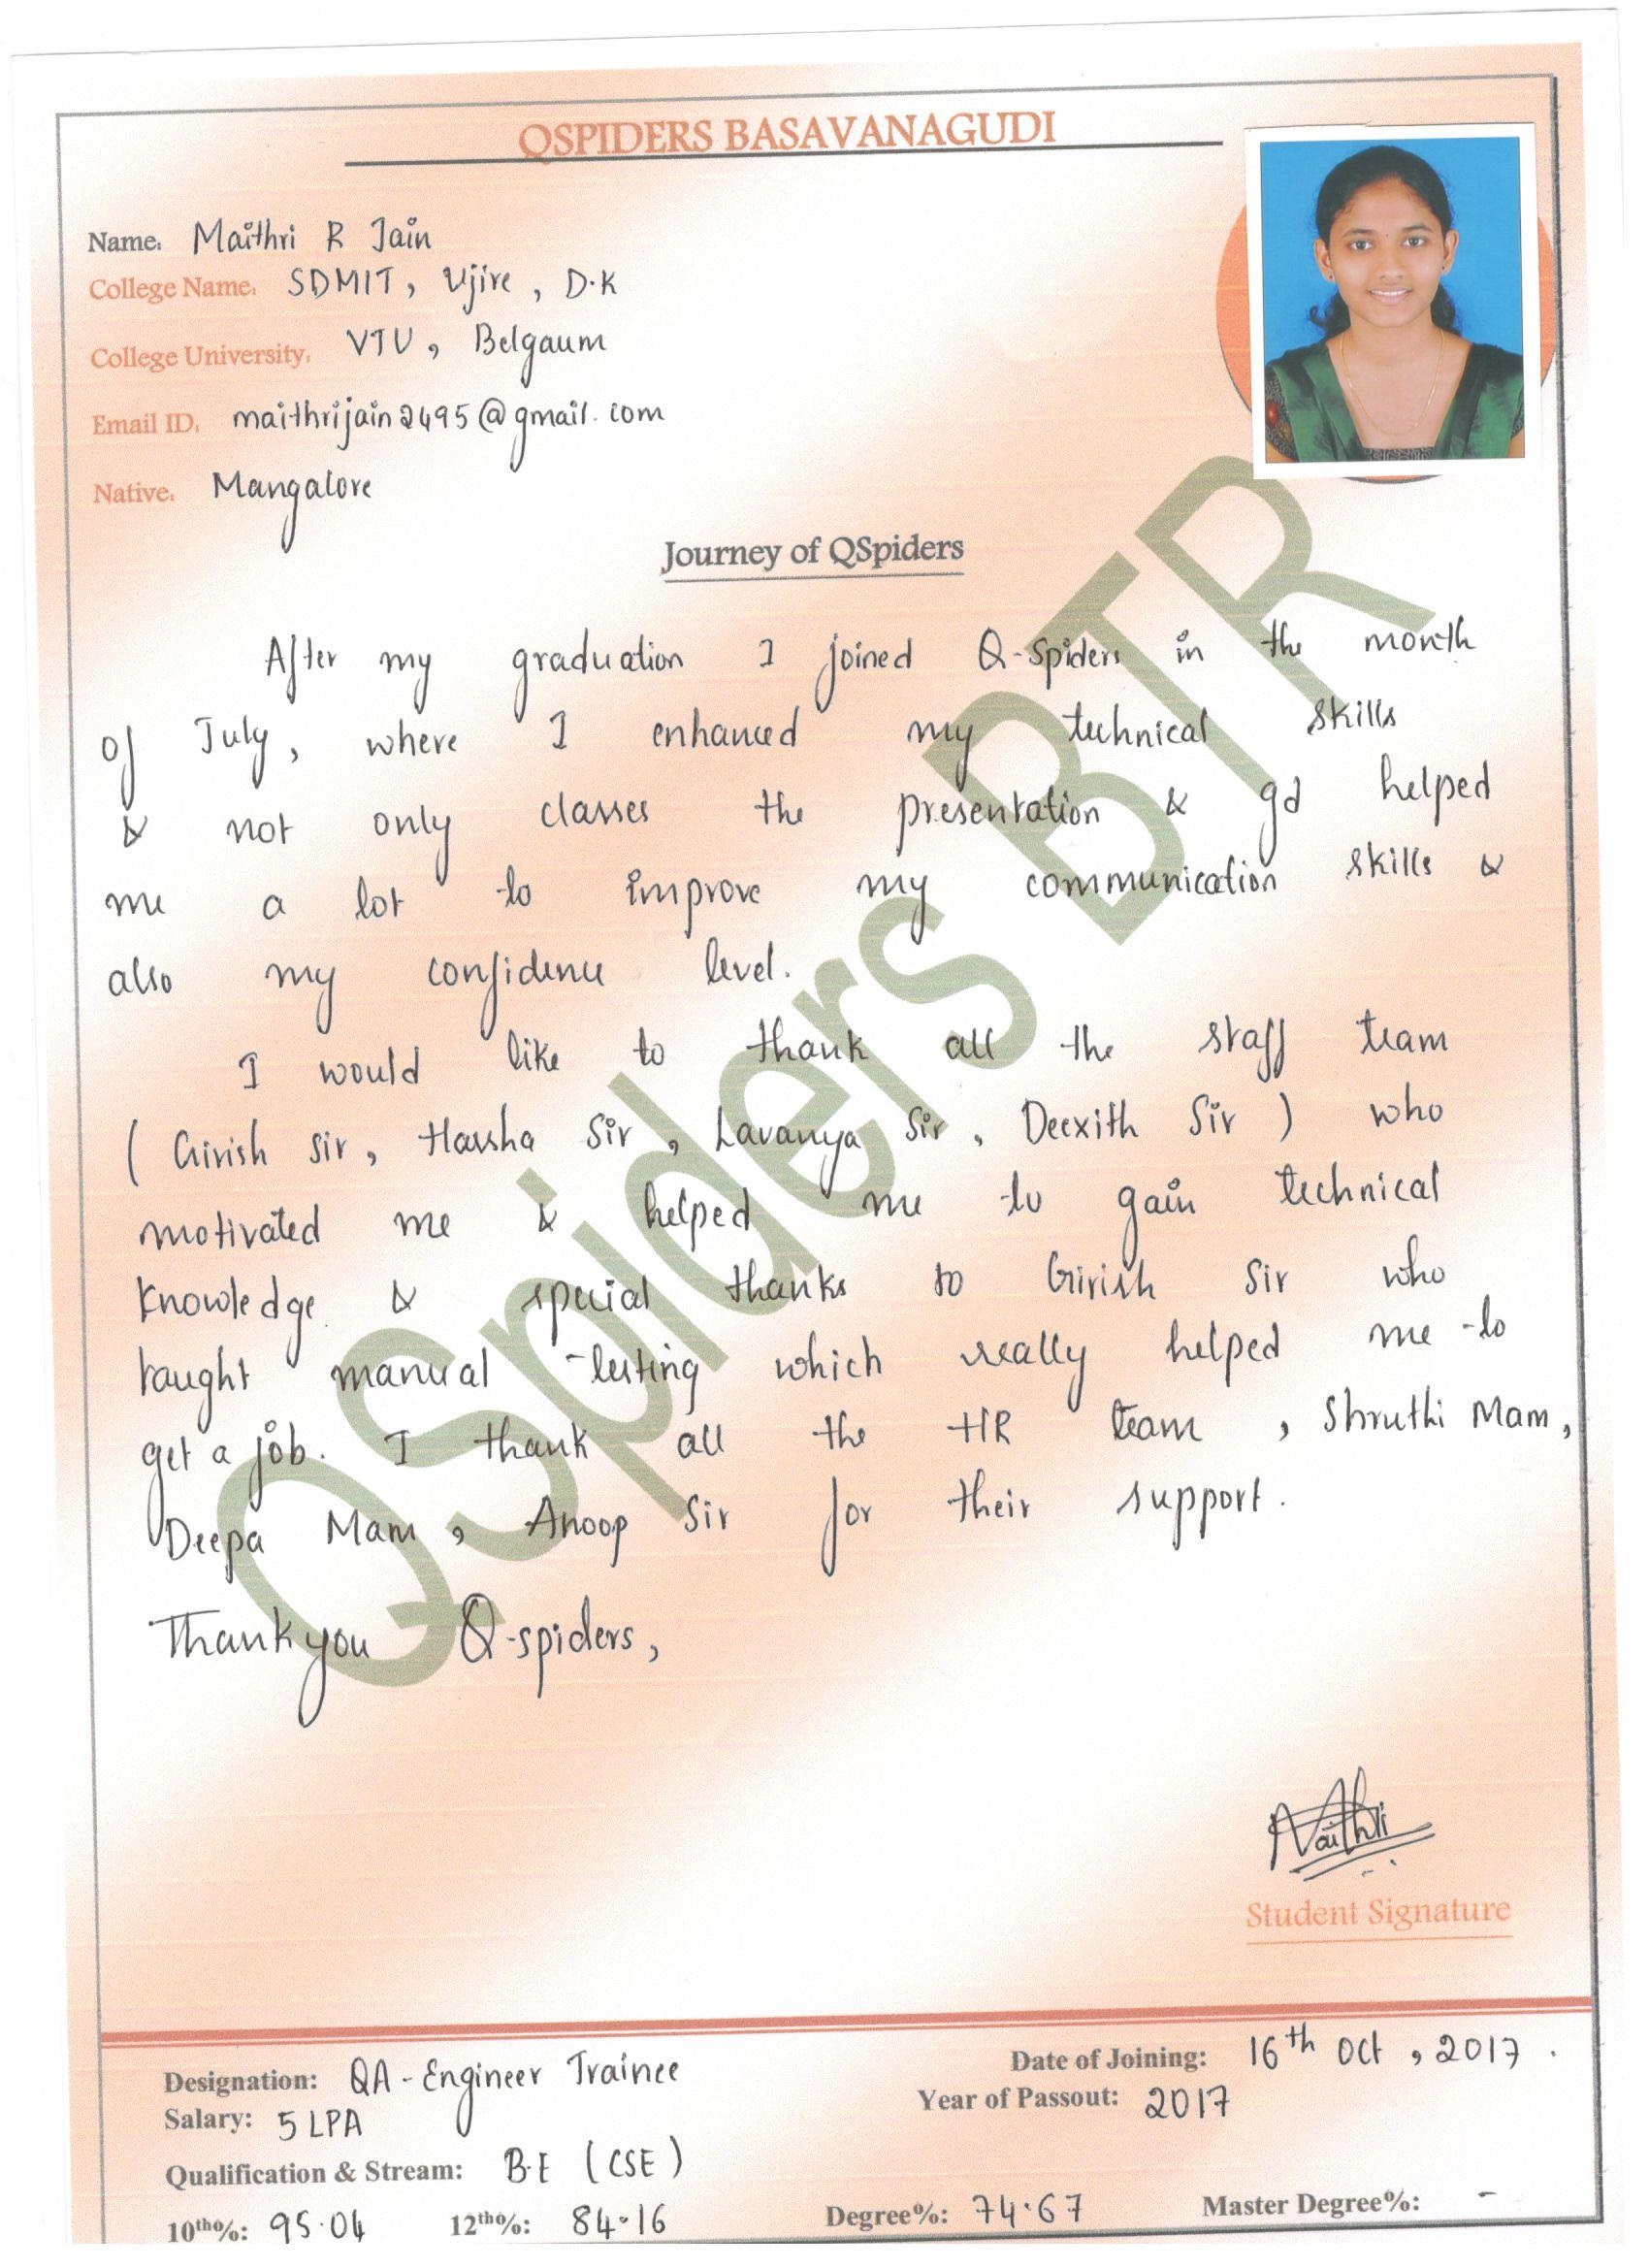 QSPIDERS BASAVANAGUDI
Name: Maithri R Jain
College Name: SDMIT, Ujire, D.K
College University: VTU, Belgaum
Email ID: maithrijain2495@gmail.com
Native: Mangalore
Journey of QSpiders
After my graduation I joined Q-Spiders in the month
of July, where I enhanced my technical skills
& not only classes the presentation & gd helped
me a lot to improve my communication skills &
also my confidence level.
I would like to thank all the staff team
(Girish sir, Harsha Sir, Lavanya Sir, Deexith Sir) who
motivated me & helped me to gain technical
knowledge & special thanks to Girish Sir who
taught manual testing which really helped me to
get a job. I thank all the HR team, Shruthi Mam,
Deepa Mam, Anoop Sir for their support.
Thank you Q-spiders,
QSpiders BTR
Maithri
Student Signature
Designation: QA-Engineer Trainee
Date of Joining: 16th Oct, 2017.
Salary: 5 LPA
Year of Passout: 2017
Qualification & Stream: B.E (CSE)
10th%: 95.04 12th%: 84.16 Degree%: 74.67 Master Degree%: -